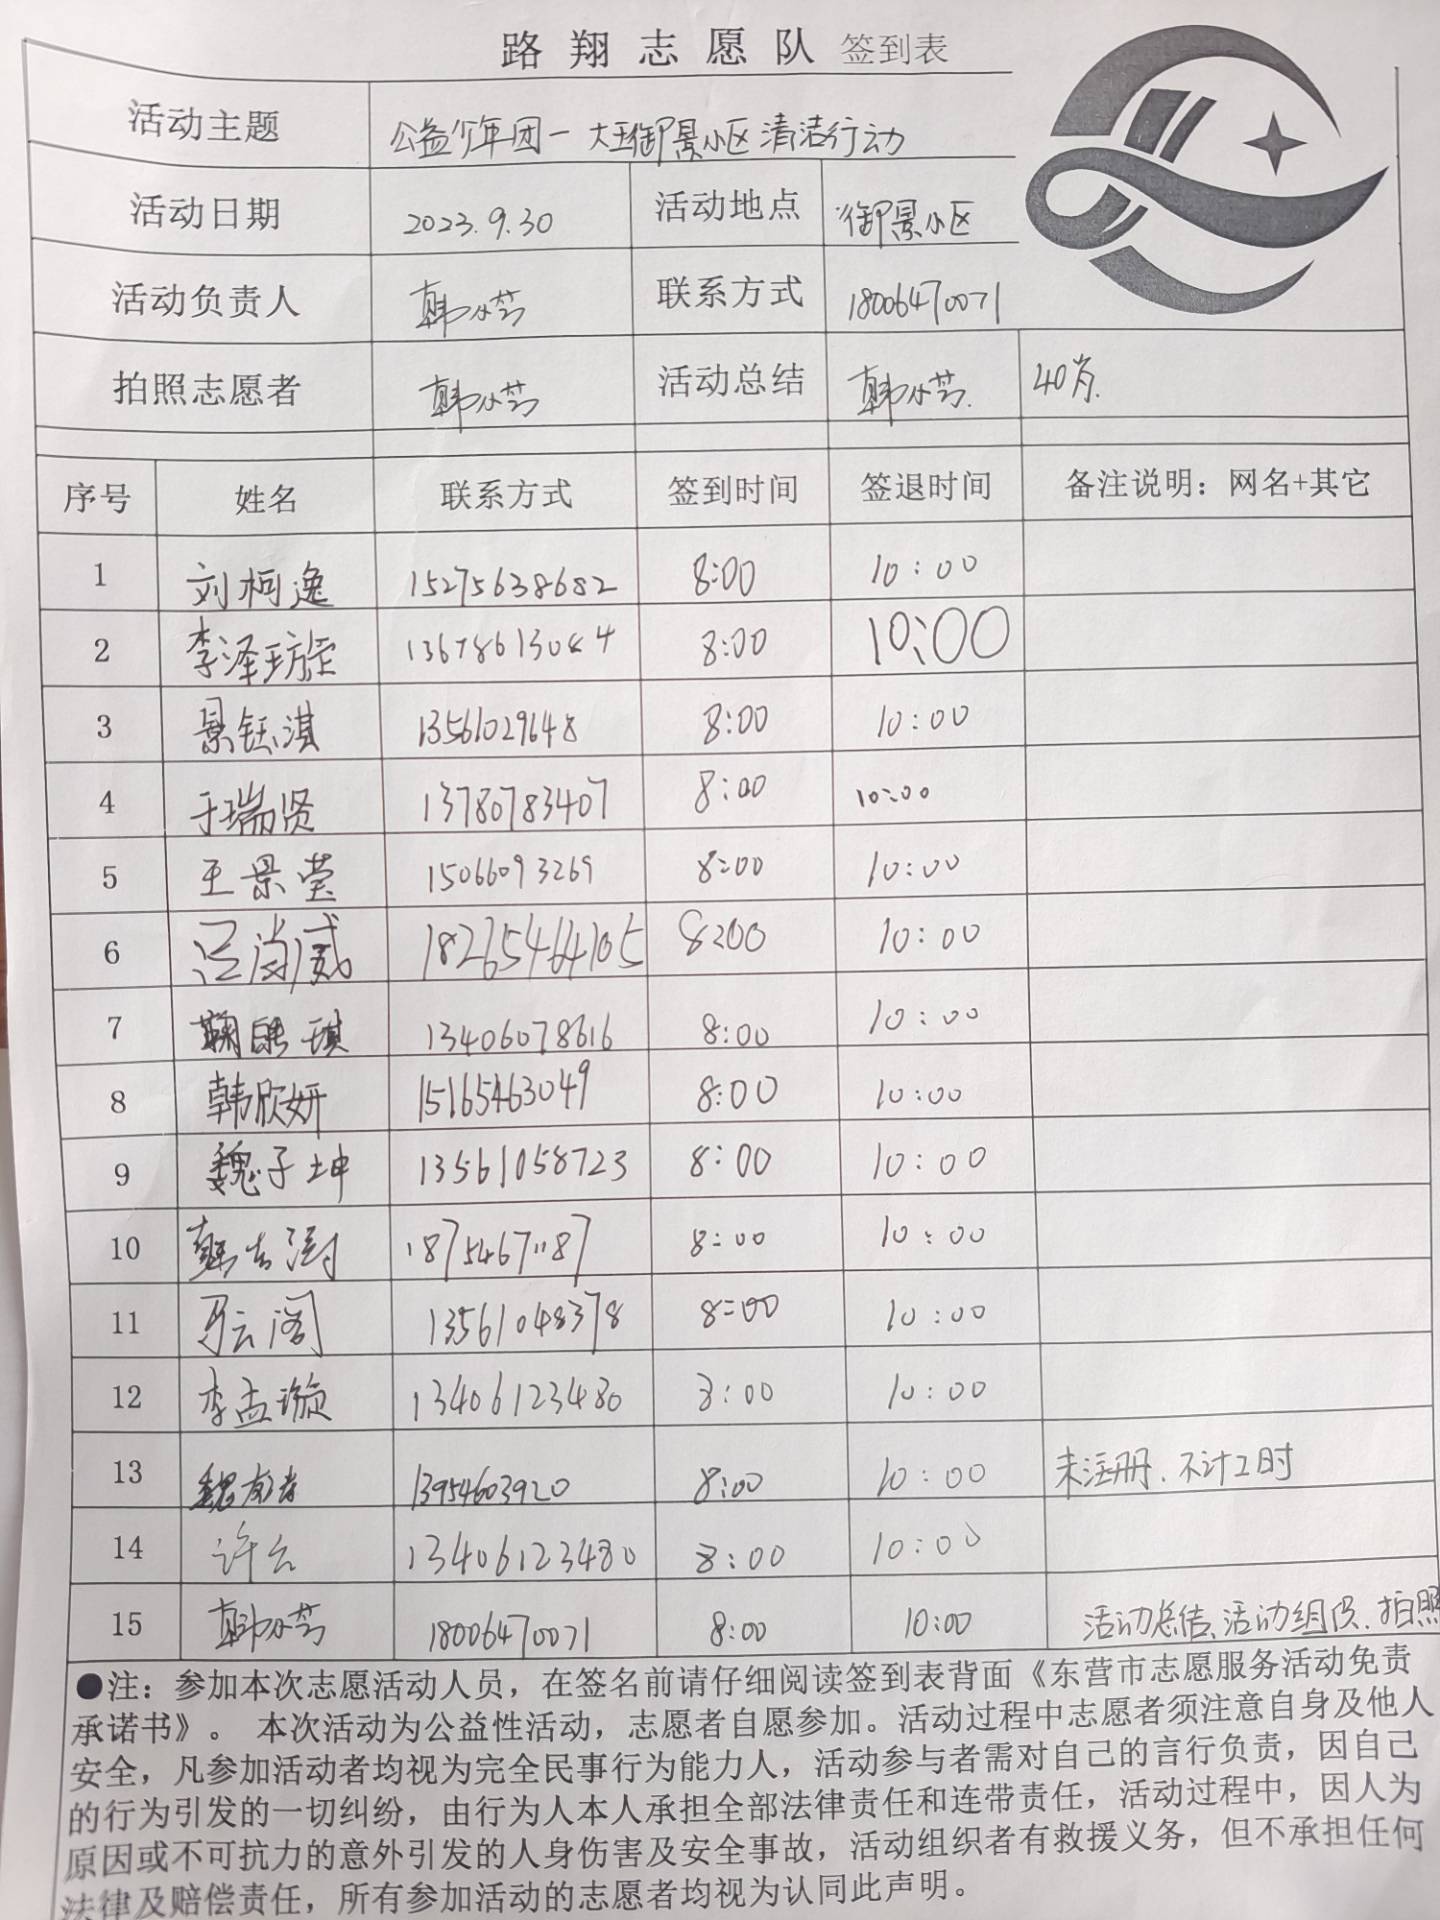 路翔志愿队 签到表
活动主题 公益少年团一大王御景小区清洁行动
活动日期 2023.9.30 活动地点 御景小区
活动负责人 韩小芳 联系方式 18006470071
拍照志愿者 韩小芳 活动总结 韩小芳. 40肖.
序号 姓名 联系方式 签到时间 签退时间 备注说明：网名+其它
1 刘柯逸 15275638682 8:00 10:00
2 李泽璇 8:00 10:00
3 景钰淇 13561029648 8:00 10:00
4 于瑞贤 13780783407 8:00 10:00
5 王景莹 15066093269 8:00 10:00
6 吕尚威 18265464105 8:00 10:00
7 琪 13406078616 8:00 10:00
8 韩欣妍 15165463049 8:00 10:00
9 魏子坤 13561058723 8:00 10:00
10 18754671187 8:00 10:00
11 马云阁 13561048378 8:00 10:00
12 李孟璇 13406123480 8:00 10:00
13 13954603920 8:00 10:00 未注册.不计工时
14 许云 13406123480 8:00 10:00
15 韩小芳 18006470071 8:00 10:00 活动总结、活动组织.拍照
●注：参加本次志愿活动人员，在签名前请仔细阅读签到表背面《东营市志愿服务活动免责
承诺书》。 本次活动为公益性活动，志愿者自愿参加。活动过程中志愿者须注意自身及他人
安全，凡参加活动者均视为完全民事行为能力人，活动参与者需对自己的言行负责，因自己
的行为引发的一切纠纷，由行为人本人承担全部法律责任和连带责任，活动过程中，因人为
原因或不可抗力的意外引发的人身伤害及安全事故，活动组织者有救援义务，但不承担任何
法律及赔偿责任，所有参加活动的志愿者均视为认同此声明。